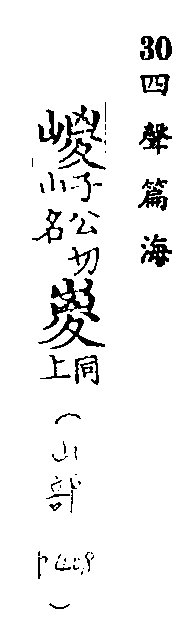 30四聲篇海
嵕子公切山名嵏同上(山部 p )